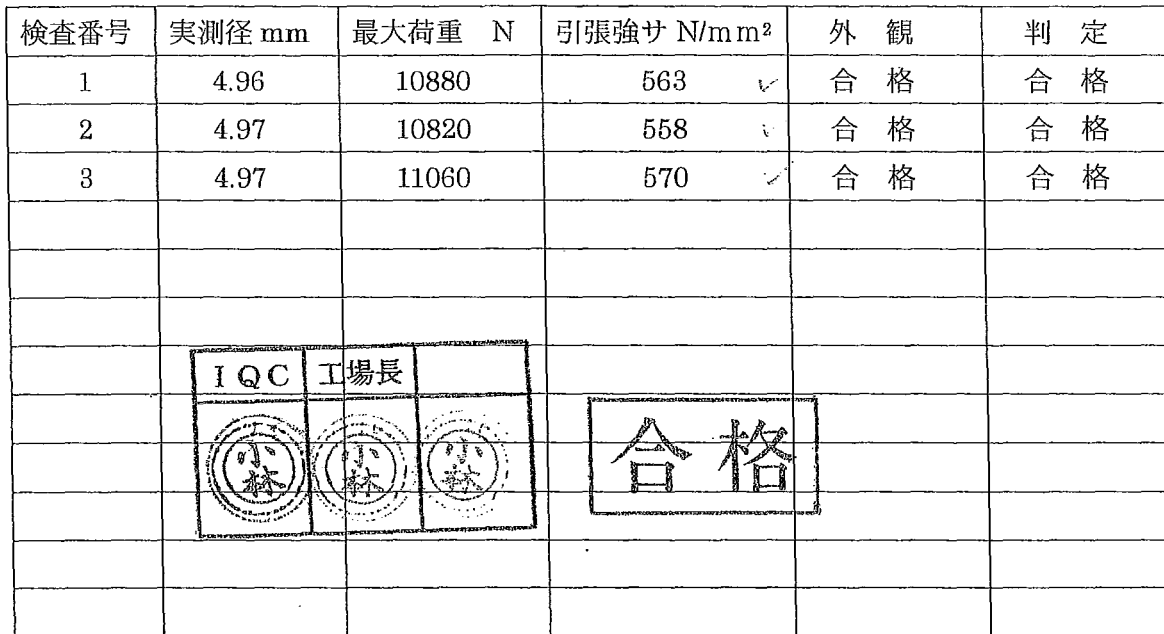 検査番号 実測径 mm 最大荷重 N 引張強サ N/mm² 外 観 判 定
1 4.96 10880 563 ✓ 合 格 合 格
2 4.97 10820 558 ✓ 合 格 合 格
3 4.97 11060 570 ✓ 合 格 合 格
IQC 工場長
小林 小林 小林
合格